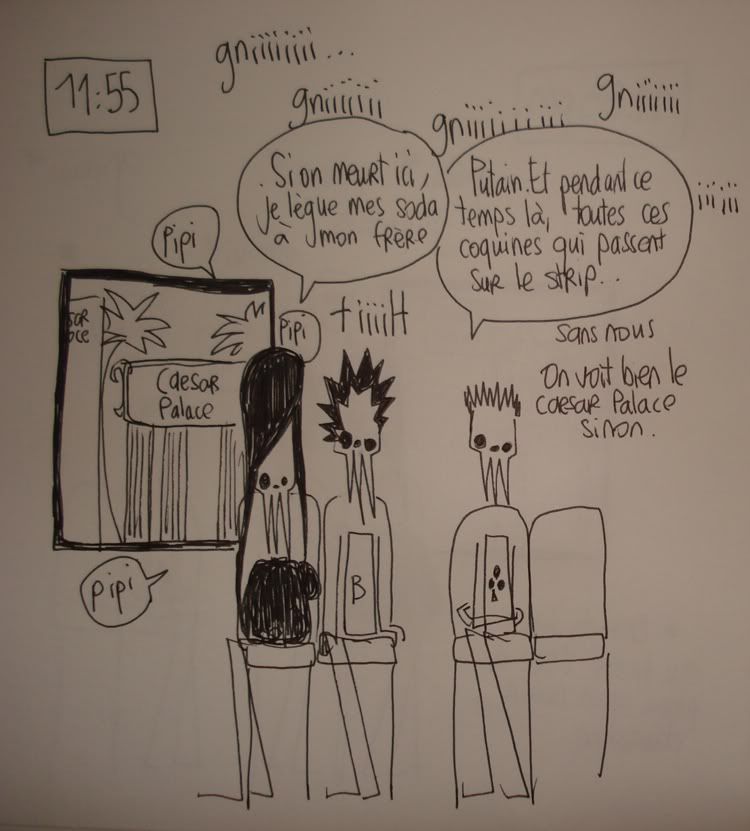 11:55
gniiiiiiii...
gniiiiiii
gniiiiiiiiii
gniiiiii
iii;iii
Si on meurt ici,
je lègue mes soda
à mon frère
Putain. Et pendant ce
temps là, toutes ces
coquines qui passent
sur le strip..
sans nous
On voit bien le
Caesar Palace
sinon.
Pipi
Pipi
tiiiilt
Caesar
Palace
B
Pipi